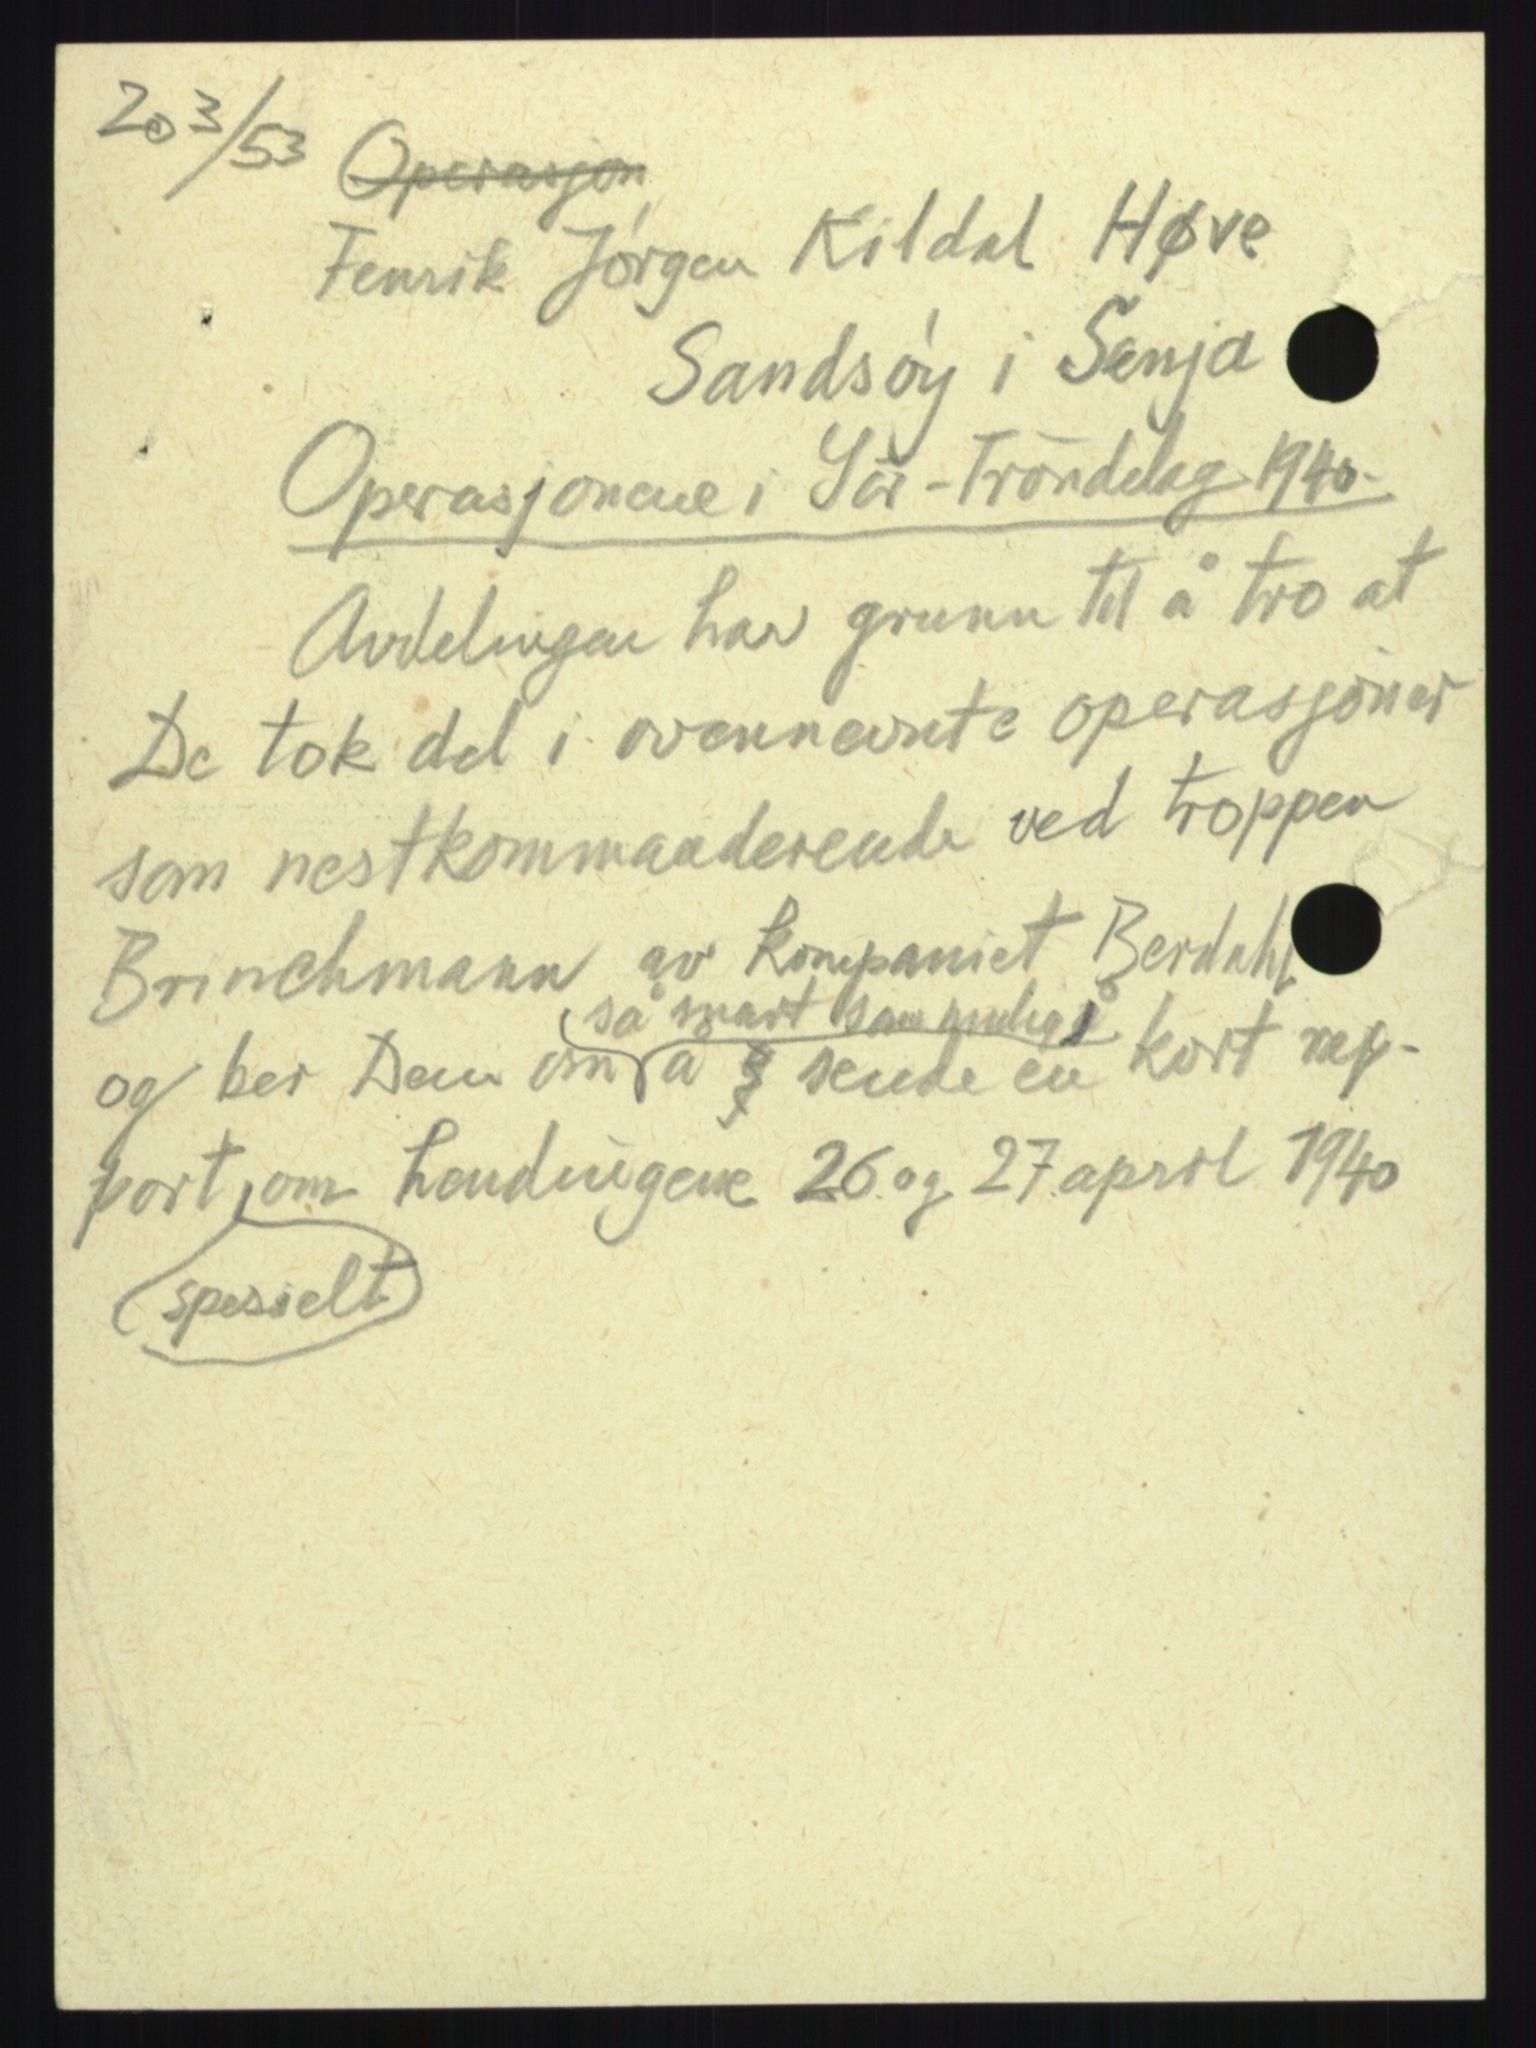 20 3/53
Operasjon
Fenrik Jörgen Kildal Høve
Sandsöy i Senja
Operasjonene i Sör-Tröndelag 1940.
Avdelingen har grunn til å tro at
De tok del i ovennevnte operasjoner
som nestkommanderende ved troppen
Brinchmann av kompaniet Berdahl
så snart som mulig
og ber Dem om å sende en kort rap-
port om hendingene 26. og 27. april 1940
spesielt